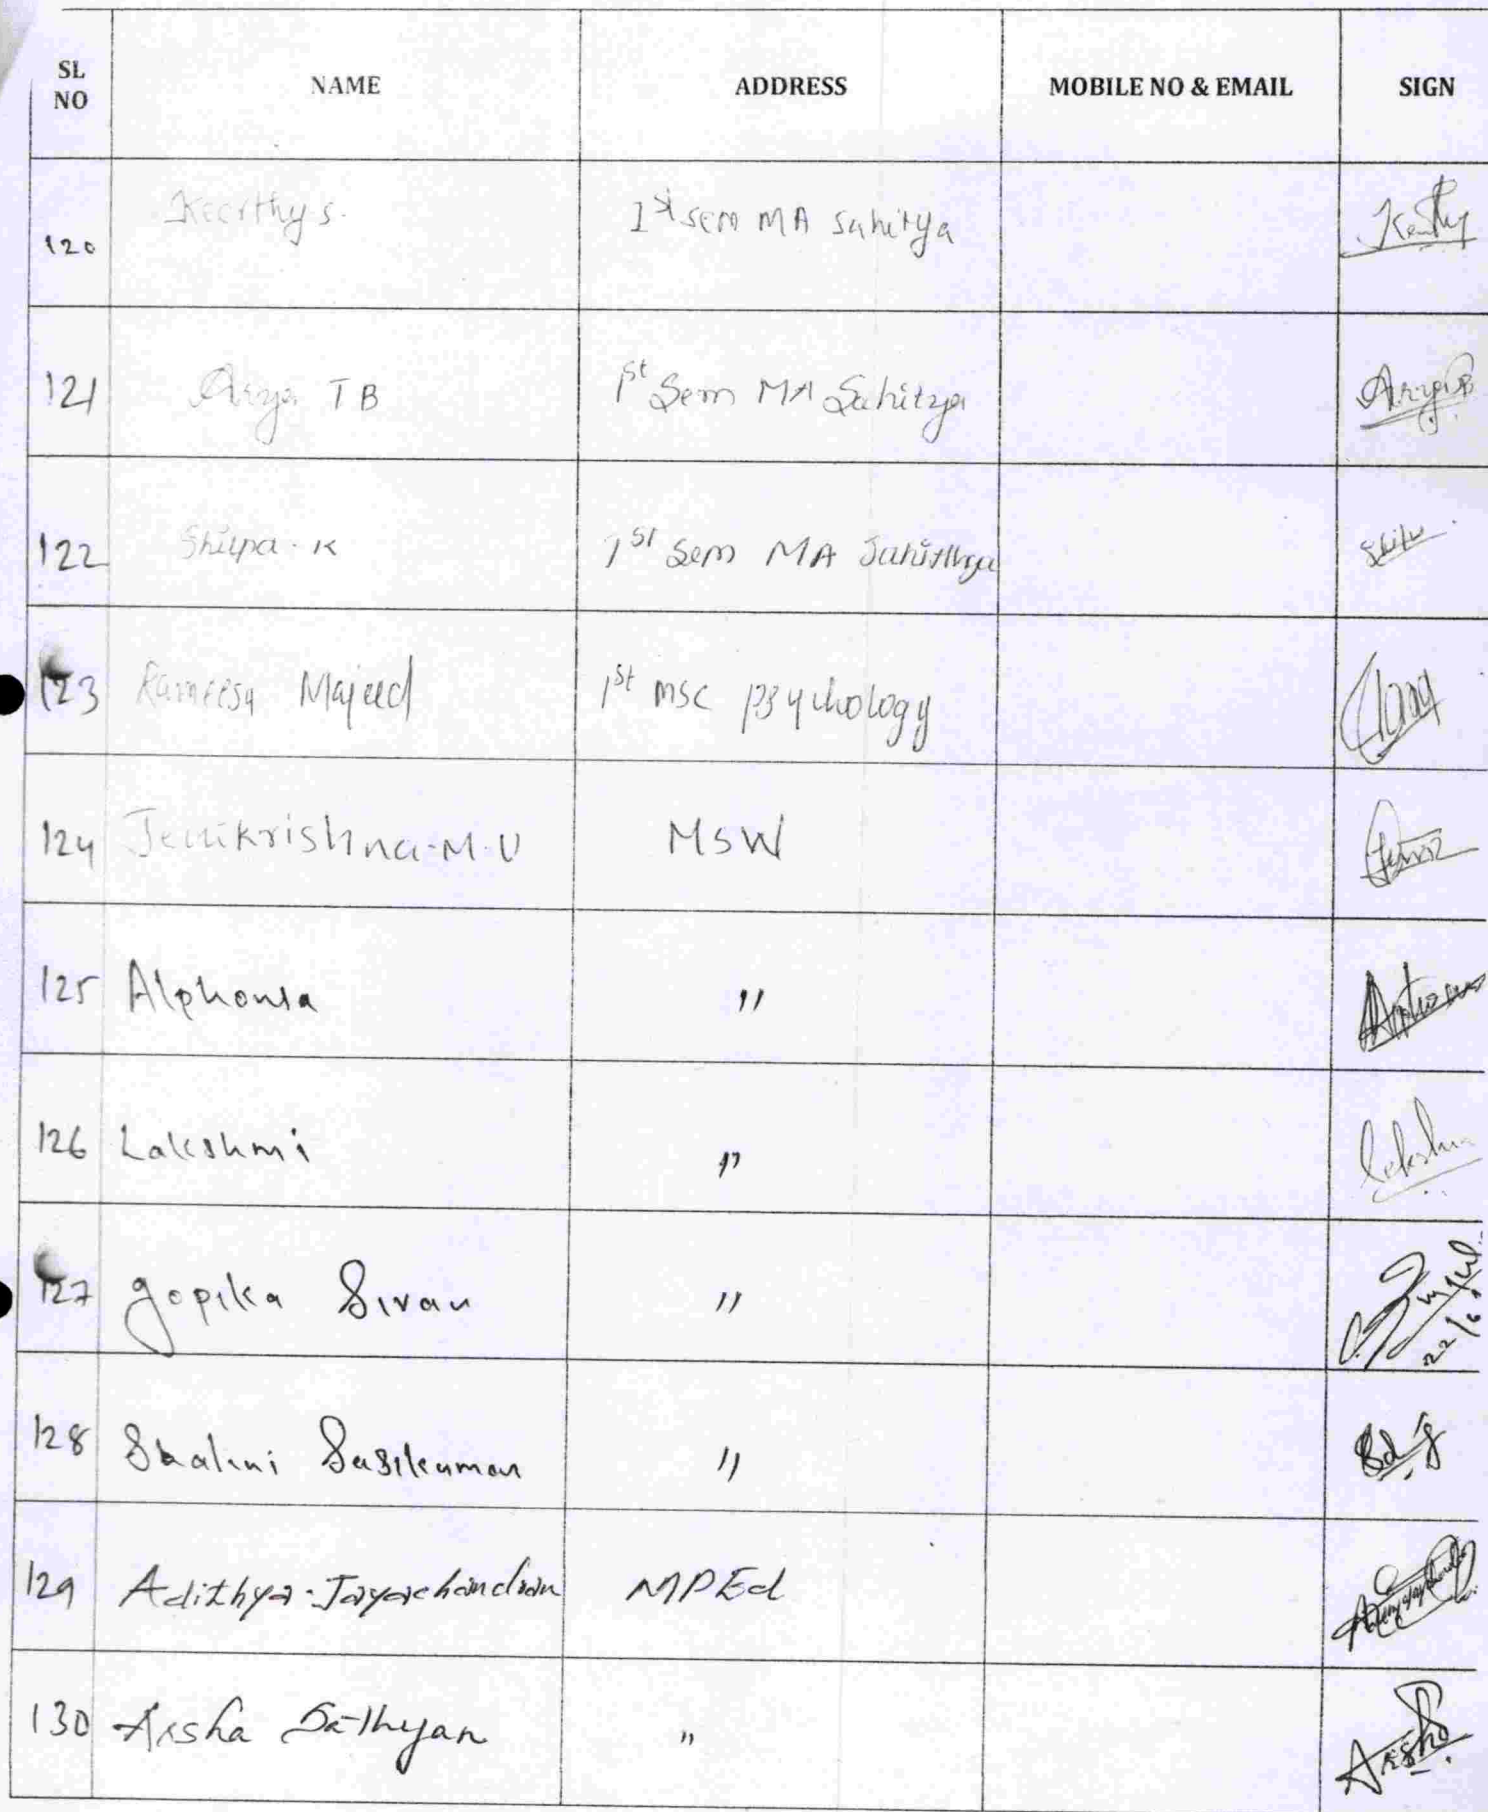 SL NO NAME ADDRESS MOBILE NO & EMAIL SIGN
120 Keerthy s. 1st sem MA sahitya Keerthy
121 Arya T B 1st Sem MA Sahitya Arya TB
122 Shilpa - K 1st Sem MA Sahithya
123 Rameesa Majeed 1st msc psychology
124 Jenikrishna - M. U MSW
125 Alphonsa "
126 Lakshmi " Lekshmi
127 Gopika Sivan "
128 Shalini Sasikumar "
129 Adithya - Jayachandran MPEd
130 Arsha Sathyan " Arsha